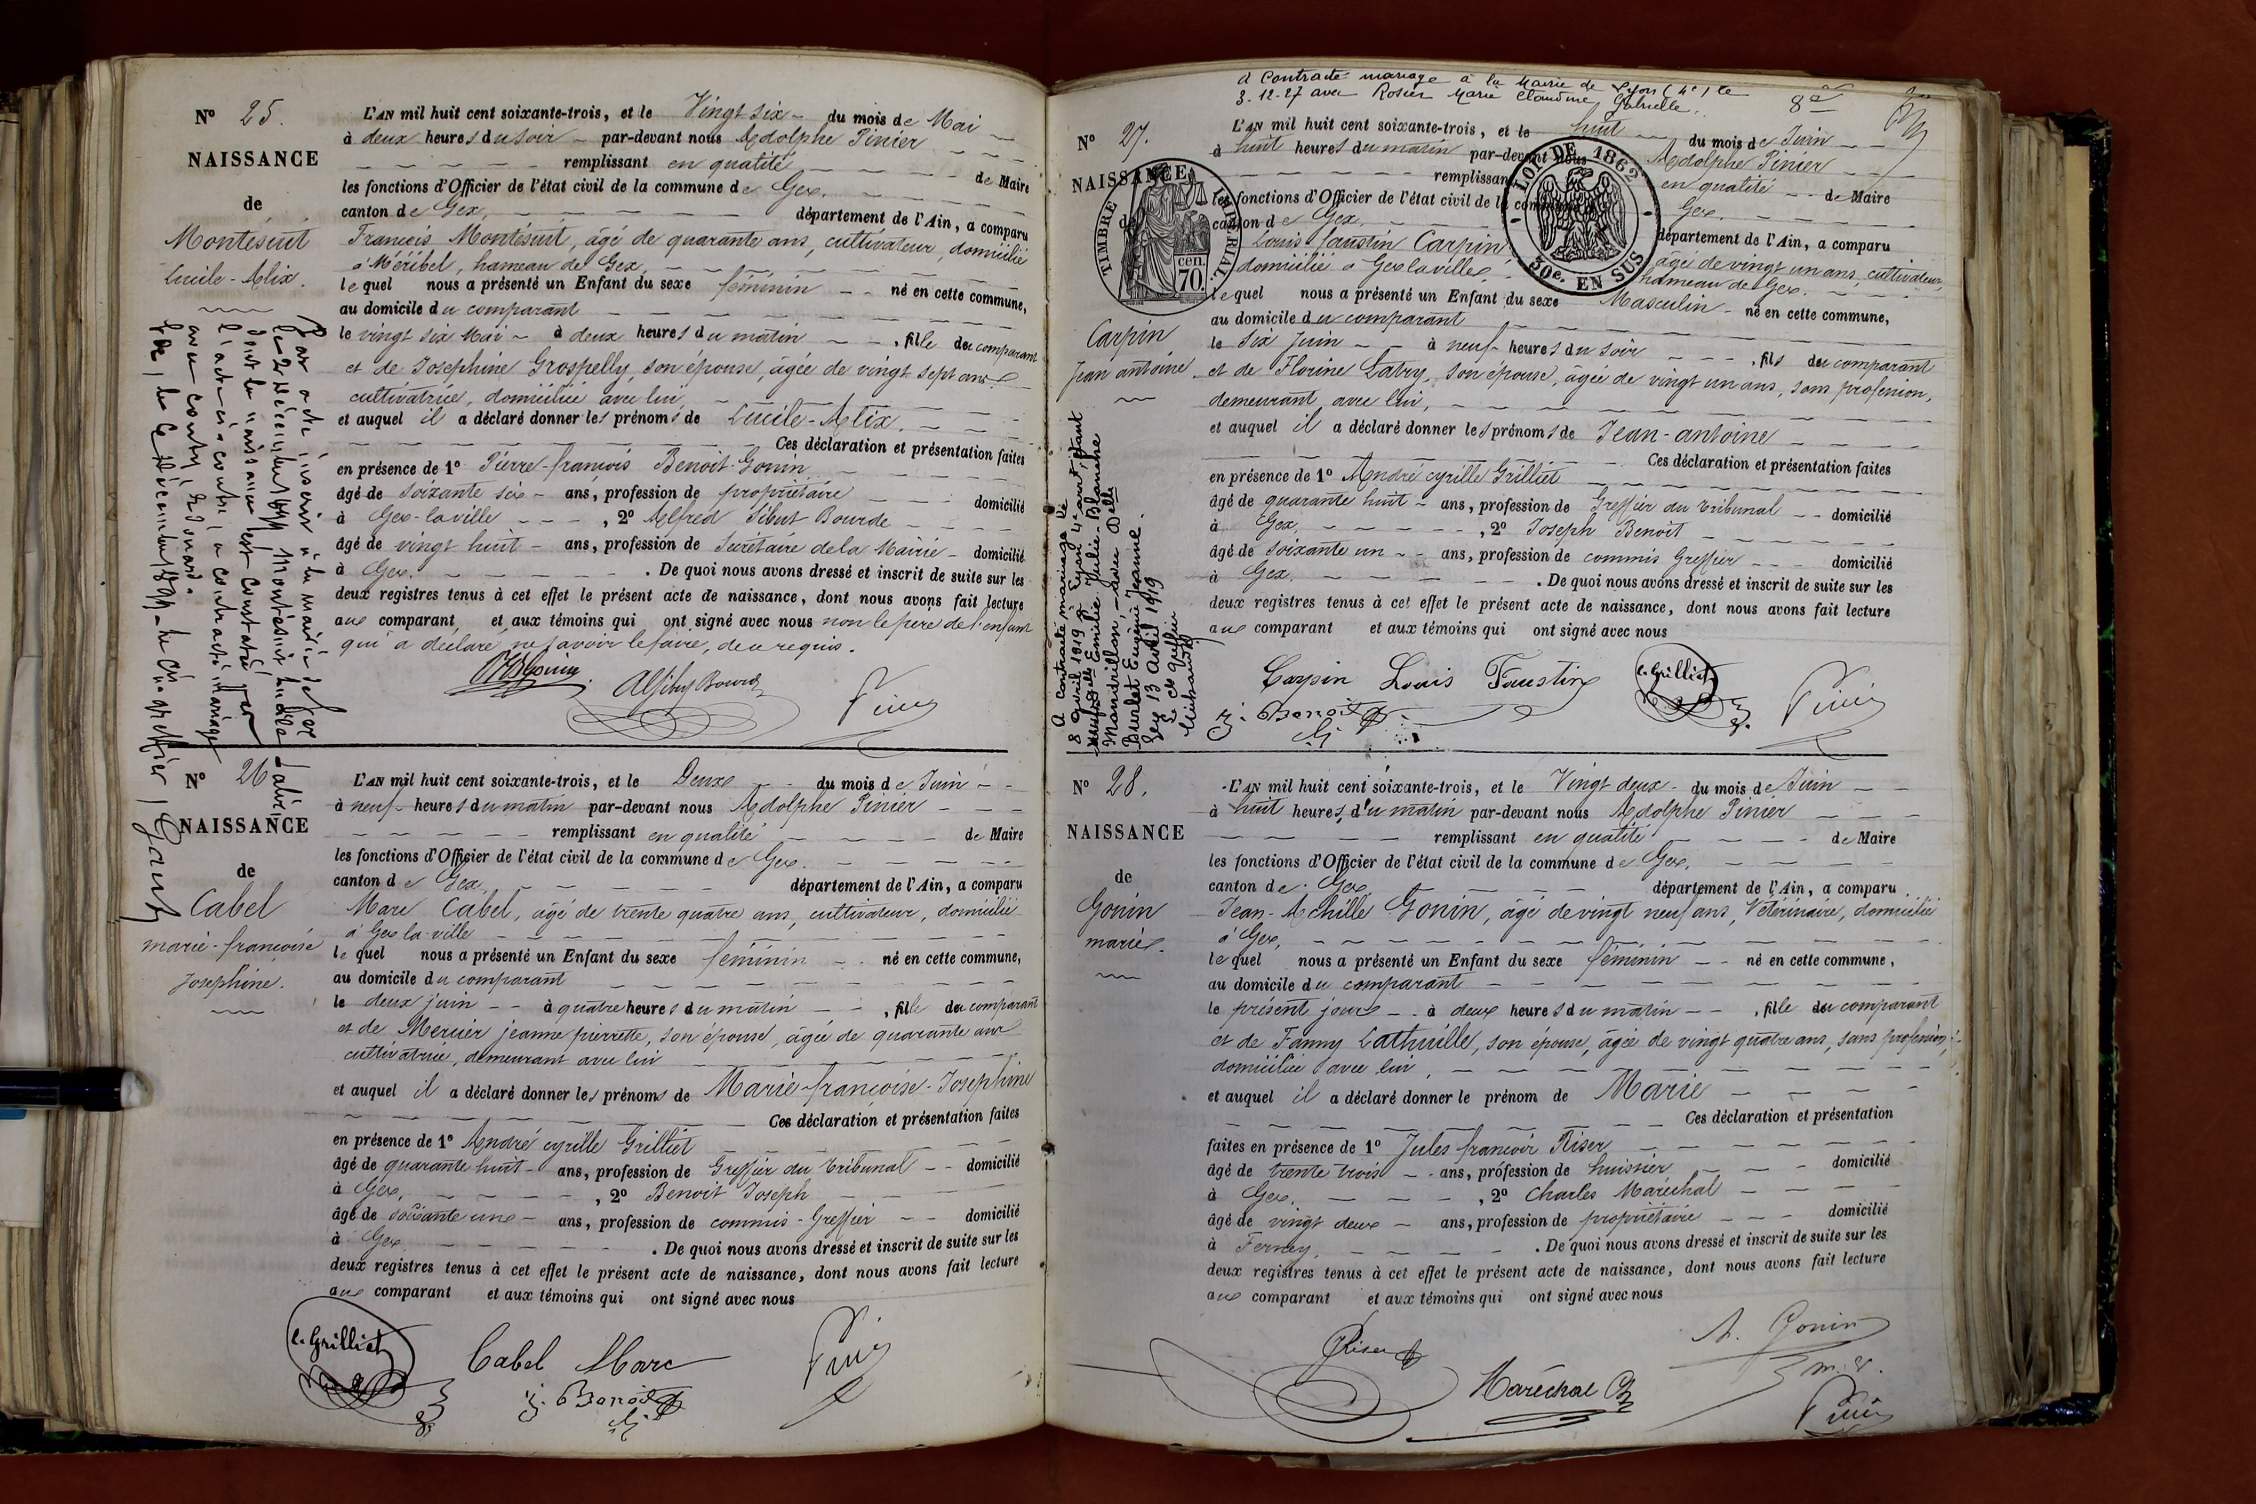 N° 25.
NAISSANCE
de
Montésuit
Lucile-Alix.
L'AN mil huit cent soixante-trois, et le Vingt six du mois de Mai
à deux heures du soir par-devant nous Adolphe Pinier
remplissant en qualité de Maire
les fonctions d'Officier de l'état civil de la commune de Gex.
canton de Gex, département de l'Ain, a comparu
François Montésuit, âgé de quarante ans, cultivateur, domicilié
à Méribel, hameau de Gex,
lequel nous a présenté un Enfant du sexe féminin né en cette commune,
au domicile du comparant
le vingt six Mai à deux heures du matin, fille du comparant
et de Josephine Grospelly, son épouse, âgée de vingt sept ans
cultivatrice, domiciliée avec lui,
et auquel il a déclaré donner les prénoms de Lucile-Alix.
Ces déclaration et présentation faites
en présence de 1° Pierre-françois Benoit-Gonin
âgé de soixante six ans, profession de propriétaire domicilié
à Gex-la ville, 2° Alfred Sibut Bourde
âgé de vingt huit ans, profession de Secrétaire de la Mairie domicilié
à Gex. . De quoi nous avons dressé et inscrit de suite sur les
deux registres tenus à cet effet le présent acte de naissance, dont nous avons fait lecture
aux comparant et aux témoins qui ont signé avec nous non le père de l'enfant
qui a déclaré ne savoir le faire, de ce requis.
l'acte ci-contre a contracté mariage
N° 26
NAISSANCE
de
Cabel
marie-françoise
Josephine.
L'AN mil huit cent soixante-trois, et le Deux du mois de Juin
à neuf heures du matin par-devant nous Adolphe Pinier
remplissant en qualité de Maire
les fonctions d'Officier de l'état civil de la commune de Gex.
canton de Gex, département de l'Ain, a comparu
Marc Cabel, âgé de trente quatre ans, cultivateur, domicilié
à Gex la-ville
lequel nous a présenté un Enfant du sexe féminin né en cette commune,
au domicile du comparant
le deux juin à quatre heures du matin, fille du comparant
et de Mercier jeanne pierrette, son épouse, âgée de quarante ans
cultivatrice, demeurant avec lui
et auquel il a déclaré donner les prénoms de Marie-françoise-Josephine
Ces déclaration et présentation faites
en présence de 1° André cyrille Grilliet
âgé de quarante huit ans, profession de Greffier du tribunal domicilié
à Gex, , 2° Benoit Joseph
âgé de soixante une ans, profession de commis-Greffier domicilié
à Gex . De quoi nous avons dressé et inscrit de suite sur les
deux registres tenus à cet effet le présent acte de naissance, dont nous avons fait lecture
aux comparant et aux témoins qui ont signé avec nous
c. Grilliet
Cabel Marc
j. Benoit
A contracté mariage à la Mairie de Lyon (4e) le
3-12-27 avec Rosier Marie Claudine Gabrielle.
N° 27.
NAISSANCE
de
TIMBRE IMPÉRIAL.
70 cen.
LOI DE 1862
30c. EN SUS
Carpin
Jean antoine
L'AN mil huit cent soixante-trois, et le huit du mois de Juin
à huit heures du matin par-devant nous Adolphe Pinier
remplissant en qualité de Maire
les fonctions d'Officier de l'état civil de la commune Gex.
canton de Gex, département de l'Ain, a comparu
Louis faustin Carpin âgé de vingt un ans, cultivateur,
domicilié à Gex la ville, hameau de Gex.
lequel nous a présenté un Enfant du sexe Masculin né en cette commune,
au domicile du comparant
le Six Juin à neuf heures du soir, fils du comparant
et de Florine Labry, son épouse, âgée de vingt un ans, sans profession,
demeurant avec lui,
et auquel il a déclaré donner les prénoms de Jean-antoine
Ces déclaration et présentation faites
en présence de 1° André cyrille Grilliet
âgé de quarante huit ans, profession de Greffier du tribunal domicilié
à Gex, , 2° Joseph Benoit
âgé de soixante un ans, profession de commis Greffier domicilié
à Gex. . De quoi nous avons dressé et inscrit de suite sur les
deux registres tenus à cet effet le présent acte de naissance, dont nous avons fait lecture
aux comparant et aux témoins qui ont signé avec nous
A contracté mariage le
8 avril 1919 à Lyon 4e arrt, étant
Emilie Julie Blanche
Mandrillon, avec Delle
Burlet Eugénie Jeanne.
Gex 13 avril 1919
Le Greffier
Carpin Louis Faustin
c. Grilliet
j. Benoit
N° 28.
NAISSANCE
de
Gonin
marie.
L'AN mil huit cent soixante-trois, et le Vingt deux du mois de Juin
à huit heures du matin par-devant nous Adolphe Pinier
remplissant en qualité de Maire
les fonctions d'Officier de l'état civil de la commune de Gex,
canton de Gex, département de l'Ain, a comparu
Jean-Achille Gonin, âgé de vingt neuf ans, Vétérinaire, domicilié
à Gex,
lequel nous a présenté un Enfant du sexe féminin né en cette commune,
au domicile du comparant
le présent jour à deux heures du matin, fille du comparant
et de Fanny Lathuille, son épouse, âgée de vingt quatre ans, sans profession,
domiciliée avec lui,
et auquel il a déclaré donner le prénom de Marie
Ces déclaration et présentation
faites en présence de 1° Jules françois Riser
âgé de trente trois ans, profession de huissier domicilié
à Gex. , 2° Charles Maréchal
âgé de vingt deux ans, profession de propriétaire domicilié
à Ferney, . De quoi nous avons dressé et inscrit de suite sur les
deux registres tenus à cet effet le présent acte de naissance, dont nous avons fait lecture
aux comparant et aux témoins qui ont signé avec nous
Riser
A. Gonin
m. v.
Maréchal Ch